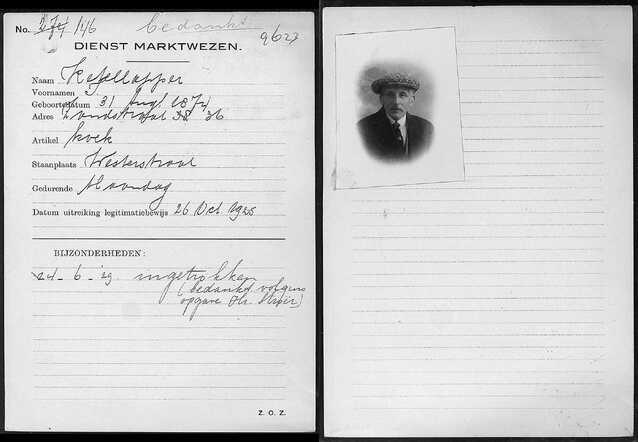 No. 146 bedankt
9627
DIENST MARKTWEZEN.
Naam Ketellapper
Voornamen J.
Geboortedatum 31 Aug 1874
Adres Zandstraat 36
Artikel koek
Staanplaats Westerstraat
Gedurende Maandag
Datum uitreiking legitimatiebewijs 26 Oct 1925
BIJZONDERHEDEN:
24-6-'29. ingetrokken
(bedankt volgens
opgave Hr. )
Z. O. Z.